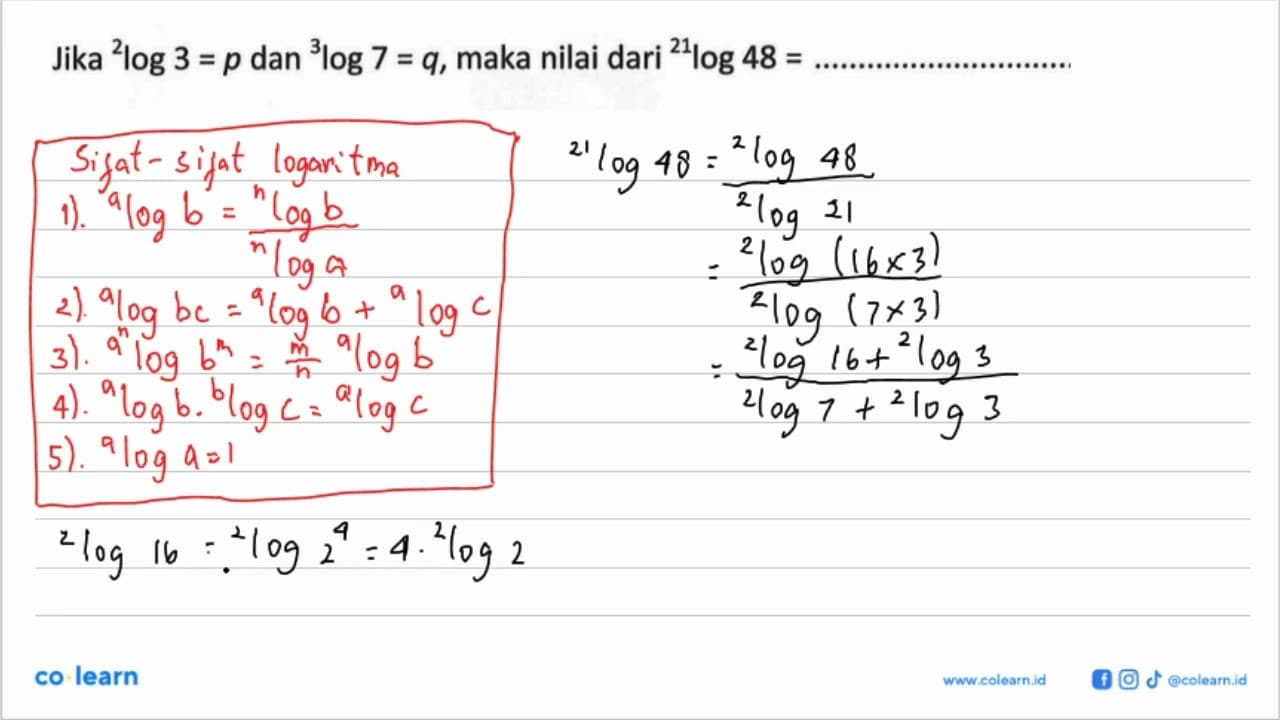 Jika ²log 3 = p dan ³log 7 = q, maka nilai dari ²¹log 48 = .............................
Sifat-sifat logaritma
1). ᵃlog b = ⁿlog b / ⁿlog a
2). ᵃlog bc = ᵃlog b + ᵃlog c
3). aⁿlog bᵐ = m/n ᵃlog b
4). ᵃlog b. ᵇlog c = ᵃlog c
5). ᵃlog a = 1
²log 16 = ²log 2⁴ = 4 . ²log 2
²¹log 48 = ²log 48 / ²log 21
= ²log (16 x 3) / ²log (7 x 3)
= ²log 16 + ²log 3 / ²log 7 + ²log 3
co learn
www.colearn.id
@colearn.id